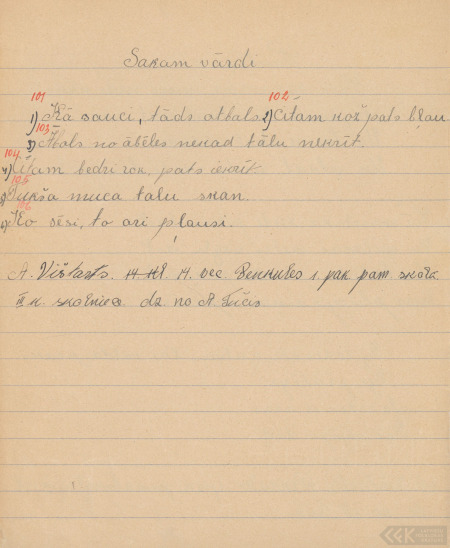 Sakam vārdi
101 102
1) Kā sauci, tāds atbals. 2) Citam kož pats bļau
103
3) Ābols no ābeles nekad tālu nekrīt.
104
4) Citam bedri rok, pats iekrīt
105
5) Tukša muca tālu skan.
106
6) Ko sēsi, to arī pļausi.
A. Vītols. 14. vec. 1. pak. pam. skola
III k. skolnieo dz no A.